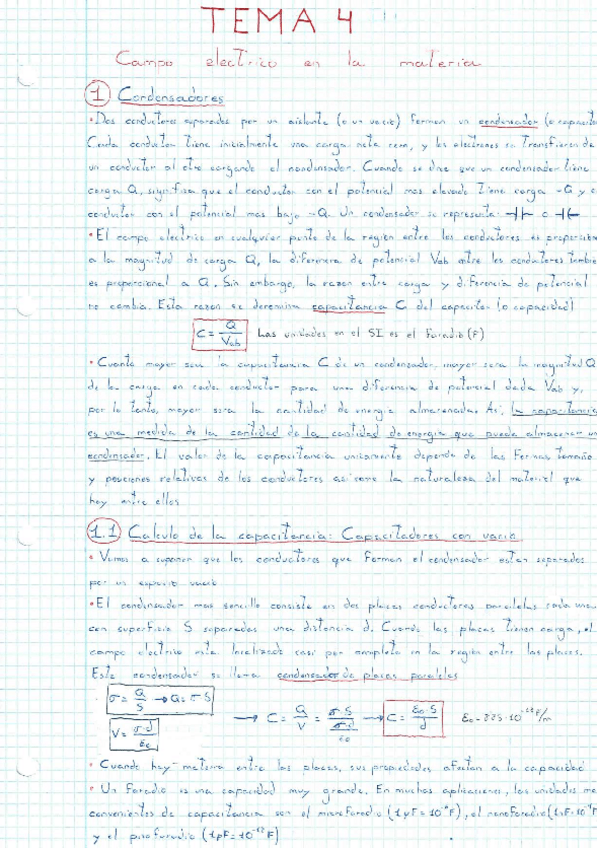 TEMA 4
Campo electrico en la materia
1 Condensadores
• Dos conductores separados por un aislante (o un vacio) forman un condensador (o capacitor
Cada conductor tiene inicialmente una carga neta cero, y los electrones se transfieren de
un conductor al otro cargando el condensador. Cuando se dice que un condensador tiene
carga Q, significa que el conductor con el potencial mas elevado tiene carga
conductor con el potencial mas bajo -Q. Un condensador se representa: ⊣⊢ o ⊣(
• El campo electrico en cualquier punto de la region entre los conductores es proporcion
a la magnitud de carga Q, la diferencia de potencial Vab entre los conductores tambie
es proporcional a Q. Sin embargo, la razon entre carga y diferencia de potencial
no cambia. Esta razon se denomina capacitancia C del capacitor (o capacidad)
C = Q/Vab Las unidades en el SI es el Faradio (F)
• Cuanto mayor sea la capacitancia C de un condensador, mayor sera la magnitud Q
de la carga en cada conductor para una diferencia de potencial dada Vab y,
por lo tanto, mayor sera la cantidad de energia almacenada. Asi, la capacitancia
es una medida de la cantidad de la cantidad de energia que puede almacenar un
condensador. El valor de la capacitancia unicamente depende de las formas, tamaño
y posiciones relativas de los conductores asi como la naturaleza del material que
hay entre ellos
1.1 Calculo de la capacitancia: Capacitadores con vacio
• Vamos a suponer que los conductores que forman el condensador estan separados
por un espacio vacio
• El condensador mas sencillo consiste en dos placas conductoras paralelas cada una
con superficie S separadas una distancia d. Cuando las placas tienen carga, el
campo electrico esta localizado casi por completo en la region entre las placas.
Este condensador se llama condensador de placas paralelas
σ = Q/S → Q = σ·S
V = σ·d/ε₀ → C = Q/V = σ·S/(σ·d/ε₀) → C = ε₀·S/d
• Cuando hay materia entre las placas, sus propiedades afectan a la capacidad
• Un faradio es una capacidad muy grande. En muchas aplicaciones, las unidades ma
convenientes de capacitancia son el microfaradio (1μF = 10⁻⁶F), el nanofaradio
y el picofaradio (1pF = 10⁻¹²F)